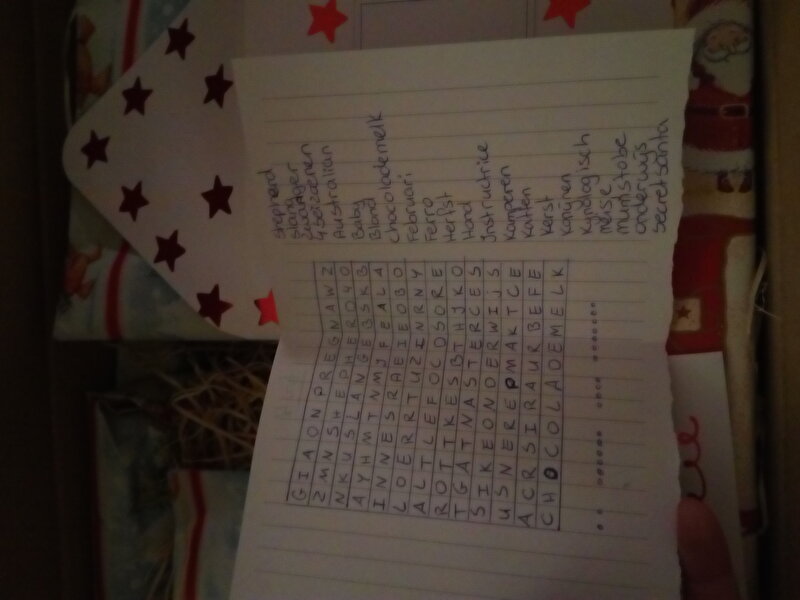 G I A O N P R E G N A W Z
Z M N S H E P H E R D 4 O
N K U S L A N G E B S K B
A Y H M T N M Y F E A L A
I N N E S R A E I E O B O
L O E R R T U Z I N R N Y
A L T L E F O C O S O R E
R O T T K E S B T H J K O
T G A T N A S T E R C E S
S I K E O N D E R W IJ S
U S N E R E P M A K T C E
A C R S I R A U R B E F E
C H O C O L A D E M E L K
Shepherd
Slang
Zwanger
4 seizoenen
Australian
Baby
Blond
Chocolademelk
Februari
Ferro
Herfst
Hond
Instructrice
Kamperen
Katten
Kerst
Konijnen
Kynologisch
Meisje
Mumstobe
Onderwijs
Secret santa